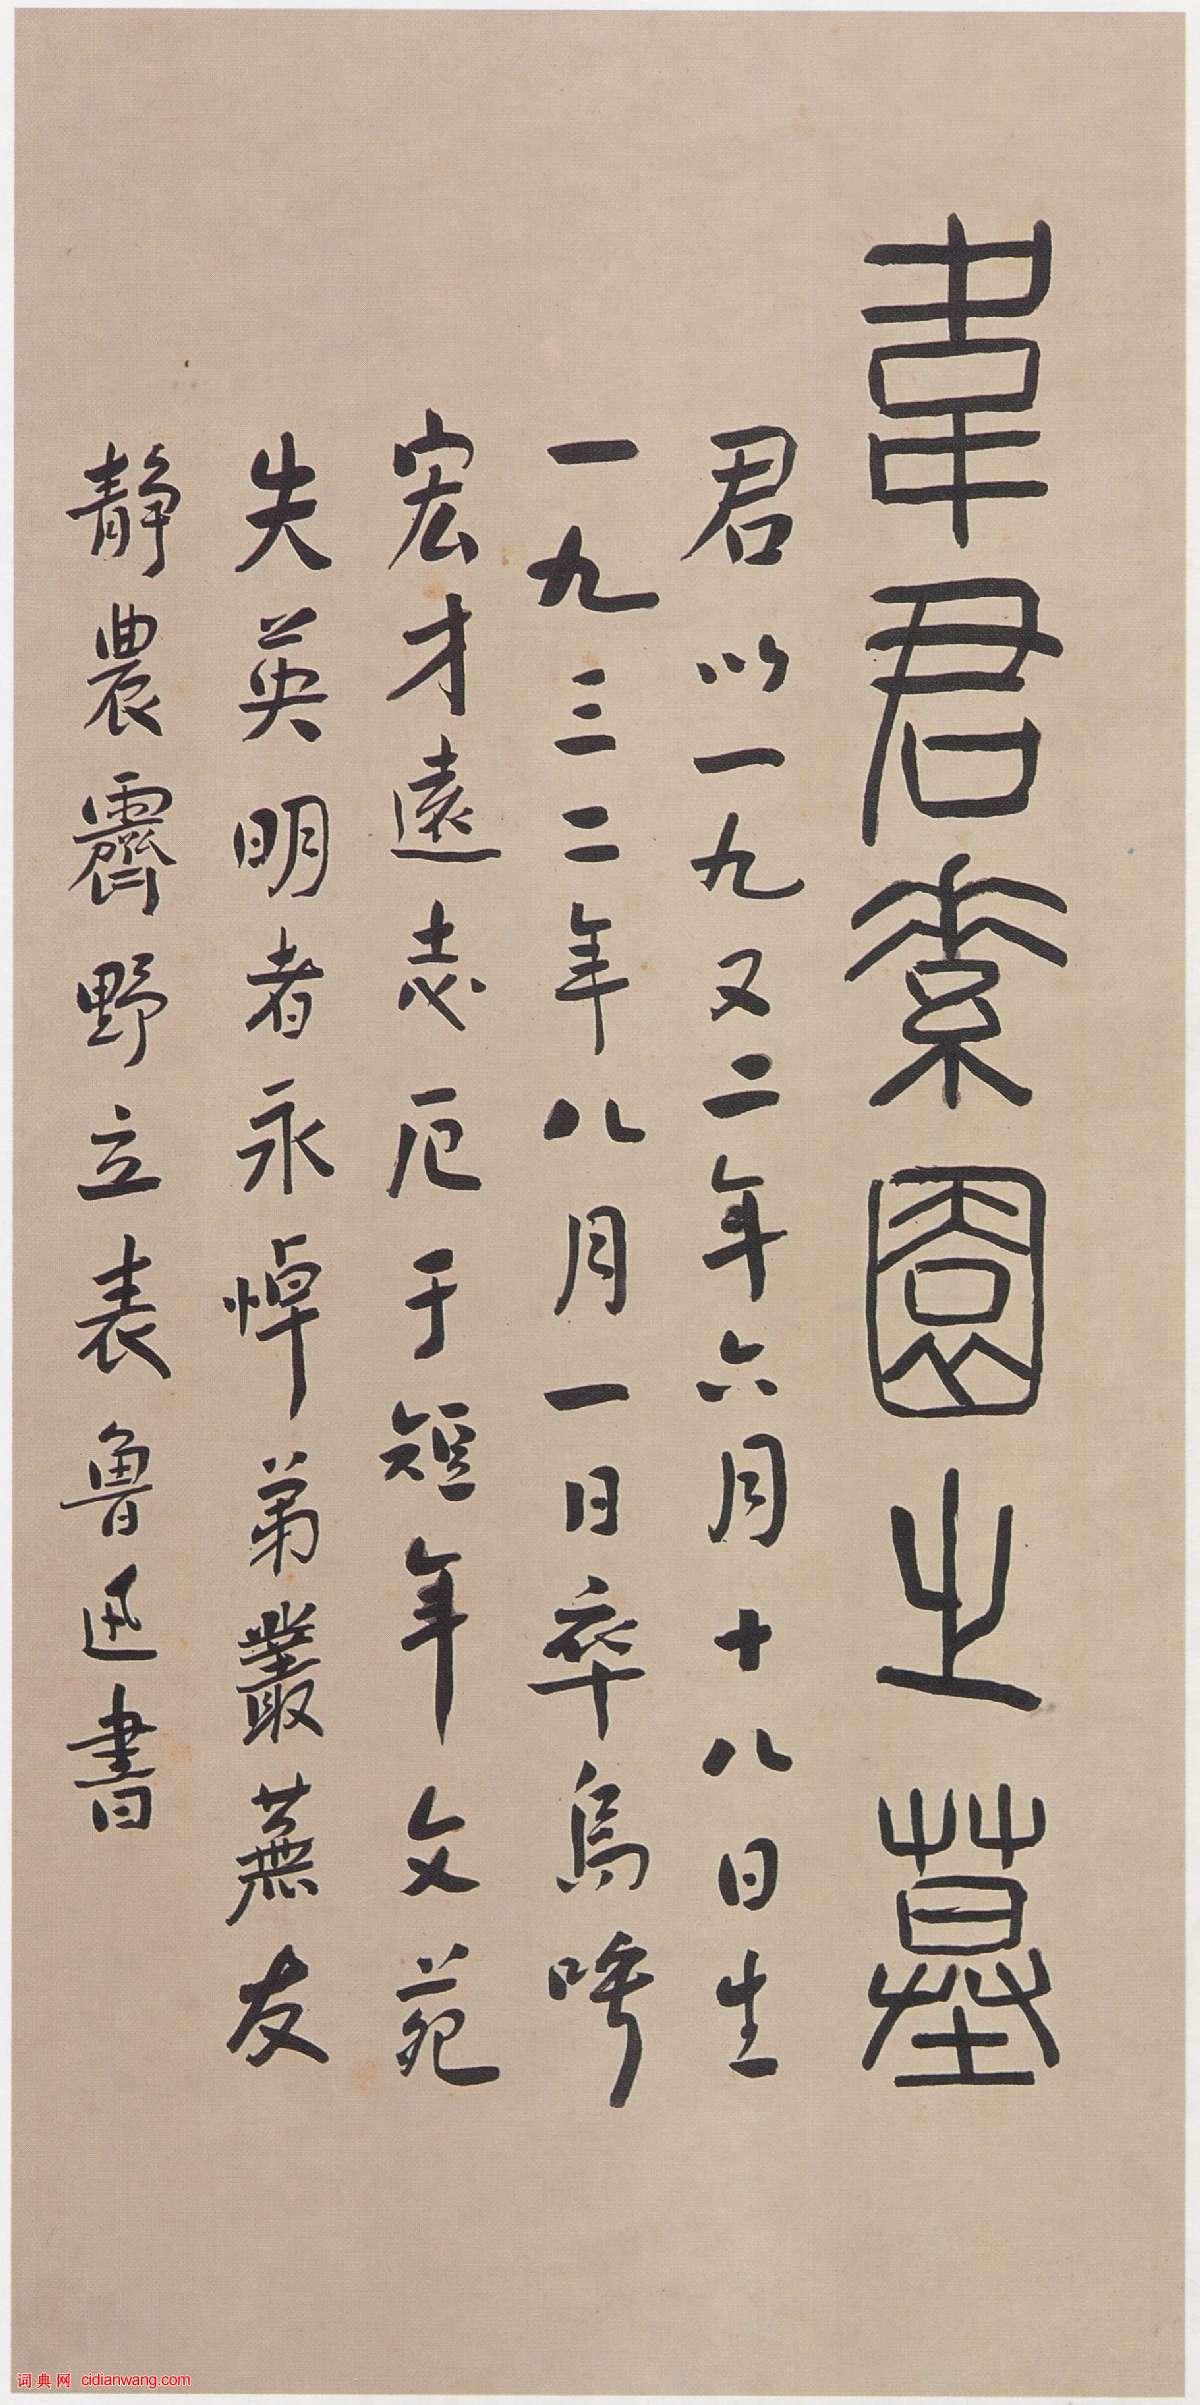 韋君素園之墓
君以一九又二年六月十八日生
一九三二年八月一日卒烏呼
宏才遠志厄于短年文苑
失英明者永悼弟叢蕪友
靜農霽野立表魯迅書
词典网 cidianwang.com